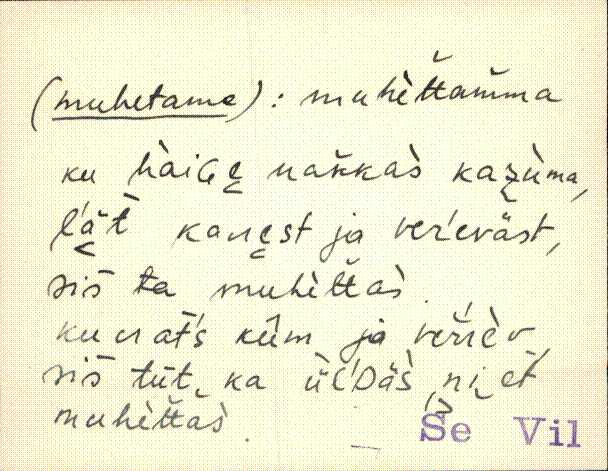 (muhetame): muhètt̆amma
ku hàiGe nakkas̀ kazùma,
l'ät̄ kanest ja ver'eväst,
siš ta muhèttas̀.
ku uat's kūm ja verièv,
siš tūt, ka ùl'Däs̀, ni et
muhèttas̀.
Se Vil